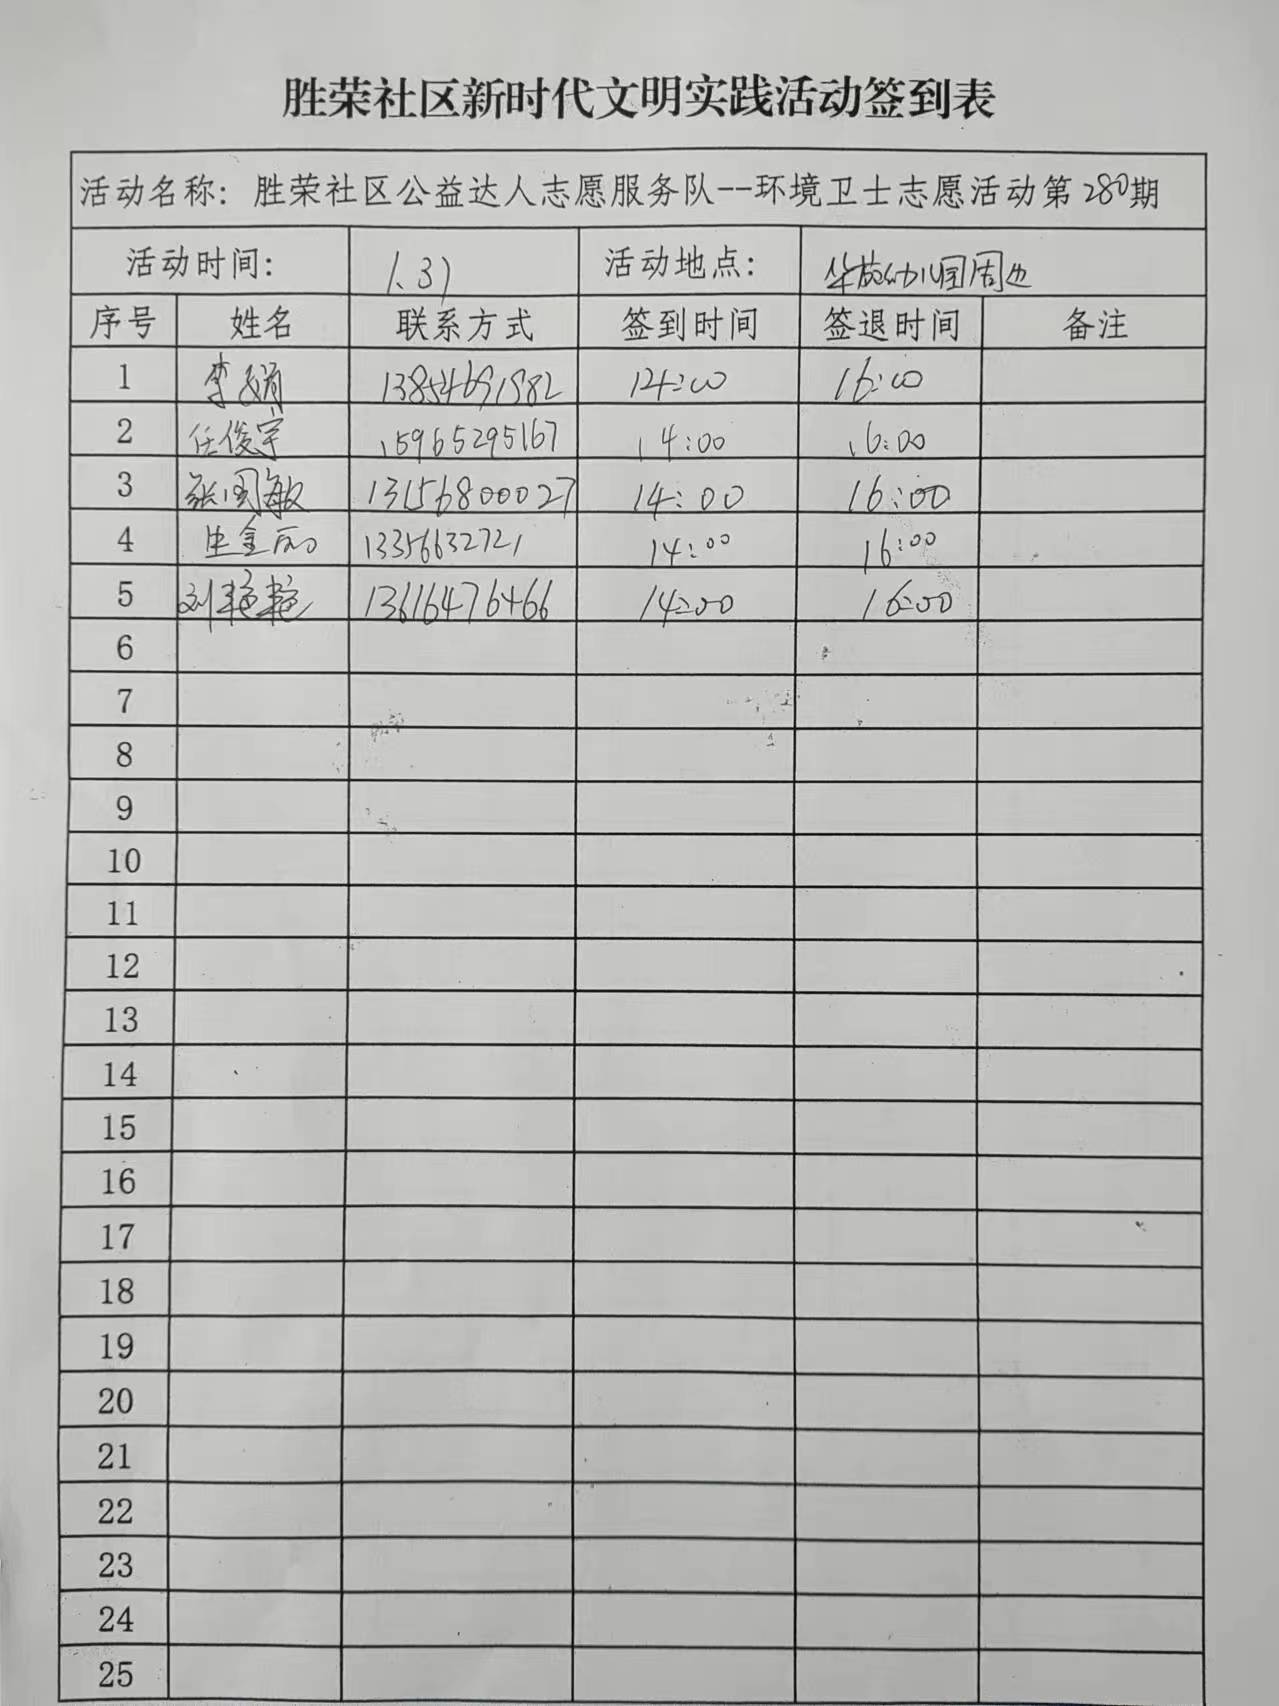 胜荣社区新时代文明实践活动签到表
活动名称：胜荣社区公益达人志愿服务队--环境卫士志愿活动第280期
活动时间： 1.31 活动地点： 幼儿园周边
序号 姓名 联系方式 签到时间 签退时间 备注
1 李娟 13854691982 14:00 16:00
2 任俊宇 15965295167 14:00 16:00
3 张国敏 13156800027 14:00 16:00
4 生金丽 13356632721 14:00 16:00
5 刘艳艳 13616476466 14:00 16:00
6
7
8
9
10
11
12
13
14
15
16
17
18
19
20
21
22
23
24
25